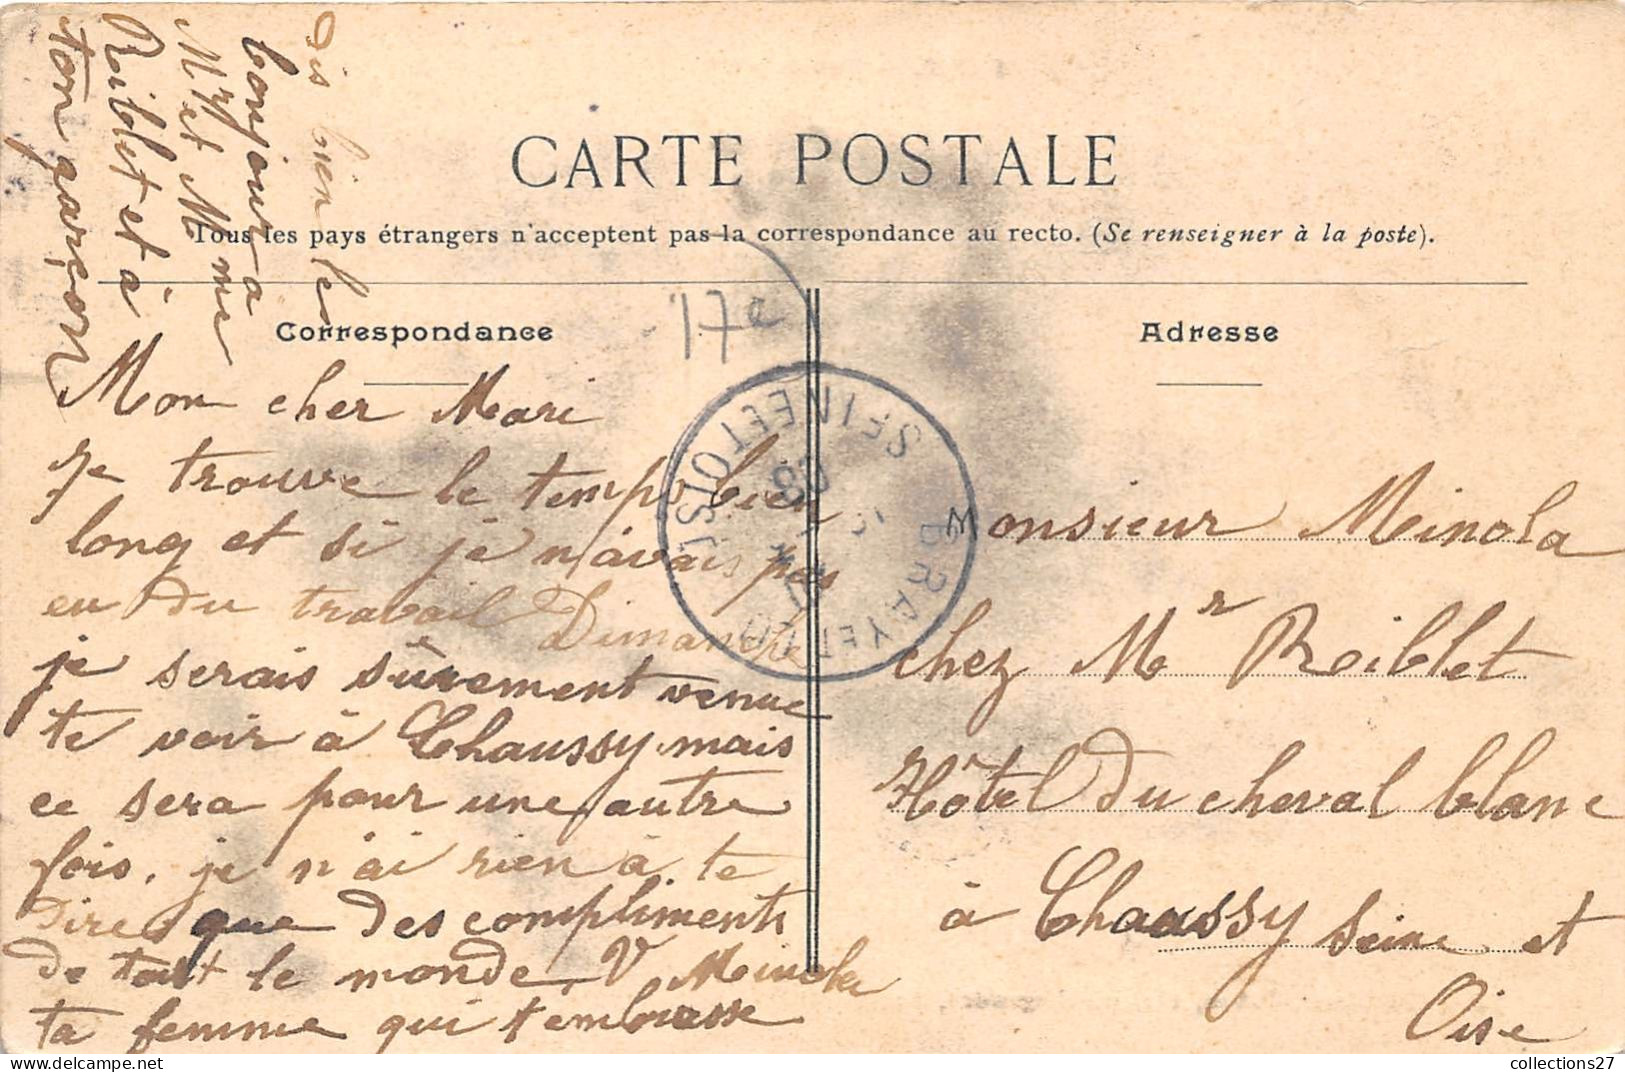 Dis bien le
bonjour a
Mr et Mme
Roiblet et à
ton garçon
CARTE POSTALE
Tous les pays étrangers n'acceptent pas la correspondance au recto. (Se renseigner à la poste).
17e
Correspondance
Mon cher Mari
Je trouve le temps bien
long et si je n'avais pas
eu du travail Dimanche
je serais sûrement venue
te voir à Chaussy mais
ce sera pour une autre
fois. je n'ai rien à te
dire que des compliments
de tout le monde. V Minola
ta femme qui t'embrasse
SEINE ET OISE
08
BRAY ET
Adresse
Monsieur Minola
chez Mr Roiblet
Hôtel du cheval blanc
à Chaussy Seine et
Oise
collections27